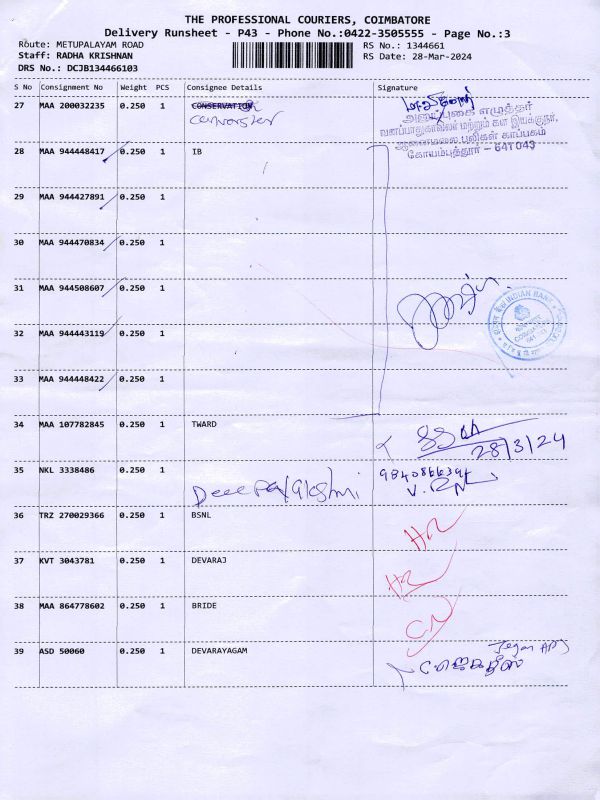 THE PROFESSIONAL COURIERS, COIMBATORE
Delivery Runsheet - P43 - Phone No.:0422-3505555 - Page No.:3
Route: METUPALAYAM ROAD RS No.: 1344661
Staff: RADHA KRISHNAN RS Date: 28-Mar-2024
DRS No.: DCJB134466103
S No Consignment No Weight PCS Consignee Details Signature
27 MAA 200032235 0.250 1 CONSERVATION
அலுவலகம் எழுத்தர்
வனப்பாதுகாவலர் மற்றும் கள இயக்குநர்,
ஆனைமலை புலிகள் காப்பகம்
கோயம்புத்தூர் - 641 043
28 MAA 944448417 0.250 1 IB
29 MAA 944427891 0.250 1
30 MAA 944470834 0.250 1
31 MAA 944508607 0.250 1
INDIAN BANK
32 MAA 944443119 0.250 1
33 MAA 944448422 0.250 1
34 MAA 107782845 0.250 1 TWARD
28/3/24
35 NKL 3338486 0.250 1
36 TRZ 270029366 0.250 1 BSNL
37 KVT 3043781 0.250 1 DEVARAJ
38 MAA 864778602 0.250 1 BRIDE
39 ASD 50060 0.250 1 DEVARAYAGAM